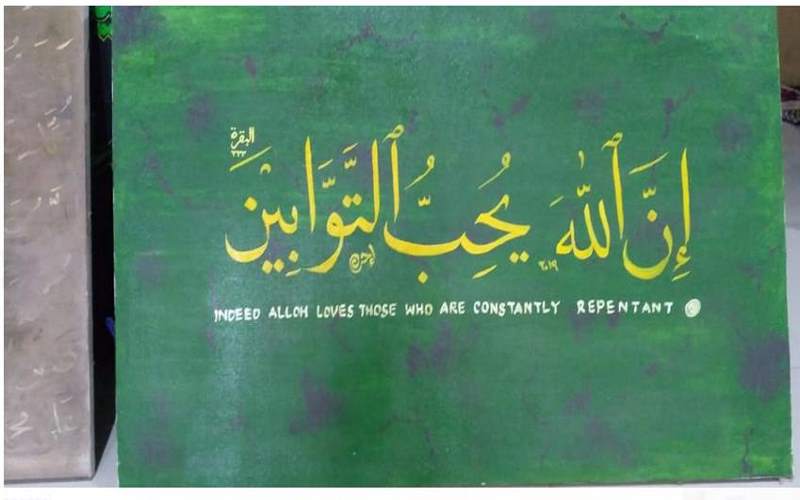 البقرة
٢٢٢
إِنَّ ٱللَّهَ يُحِبُّ ٱلتَّوَّابِينَ
٢٠١٩
INDEED ALLOH LOVES THOSE WHO ARE CONSTANTLY REPENTANT